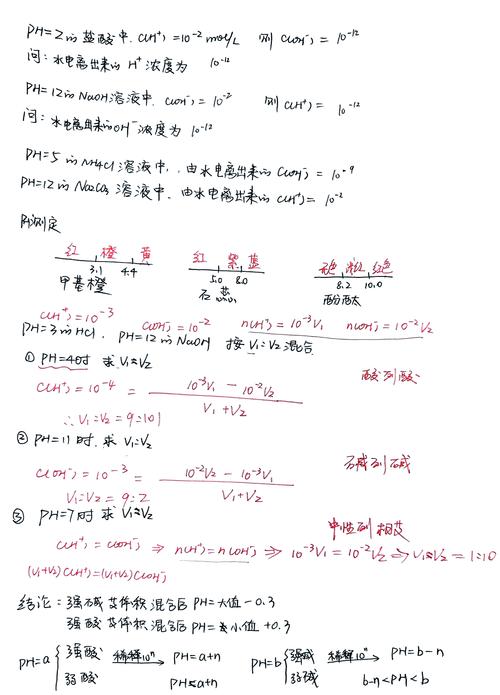 PH=2的盐酸中. C(H⁺)=10⁻² mol/L 则 C(OH⁻)=10⁻¹²
问: 水电离出来的 H⁺ 浓度为 10⁻¹²
PH=12的NaOH溶液中. C(OH⁻)=10⁻² 则 C(H⁺)=10⁻¹²
问: 水电离出来的OH⁻浓度为 10⁻¹²
PH=5的NH4Cl溶液中, 由水电离出来的C(OH⁻)=10⁻⁹
PH=12的Na2CO3溶液中, 由水电离出来的C(H⁺)=10⁻²
测定
红 橙 黄 红 紫 蓝 无色 粉红 红色
3.1 4.4 5.0 8.0 8.2 10.0
甲基橙 石蕊 酚酞
C(H⁺)=10⁻³ C(OH⁻)=10⁻² n(H⁺)=10⁻³V₁ n(OH⁻)=10⁻²V₂
PH=3的HCl. PH=12的NaOH 按V₁:V₂混合
① PH=4时 求V₁:V₂ 酸列酸
C(H⁺)=10⁻⁴ = (10⁻³V₁ - 10⁻²V₂)/(V₁+V₂)
∴V₁:V₂=9:101
② PH=11时. 求V₁:V₂ 碱列碱
C(OH⁻)=10⁻³ = (10⁻²V₂ - 10⁻³V₁)/(V₁+V₂)
V₁:V₂=9:2
③ PH=7时 求V₁:V₂ 中性列相等
C(H⁺)=C(OH⁻) ⇒ n(H⁺)=n(OH⁻) ⇒ 10⁻³V₁=10⁻²V₂ ⇒ V₁:V₂=1:10
(V₁+V₂)C(H⁺)=(V₁+V₂)C(OH⁻)
结论: 强碱等体积混合后PH=大值-0.3
强酸等体积混合后PH=小值+0.3
PH=a { 强酸 稀释10ⁿ→ PH=a+n PH=b { 强碱 稀释10ⁿ→ PH=b-n
弱酸 PH<a+n 弱碱 b-n<PH<b